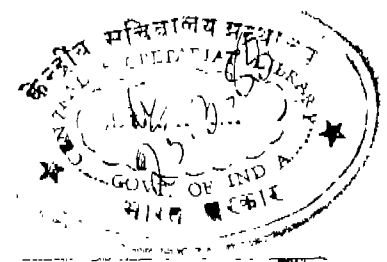 केन्द्रीय सचिवालय ग्रन्थागार
CENTRAL SECRETARIAT LIBRARY
GOVT. OF INDIA
भारत सरकार